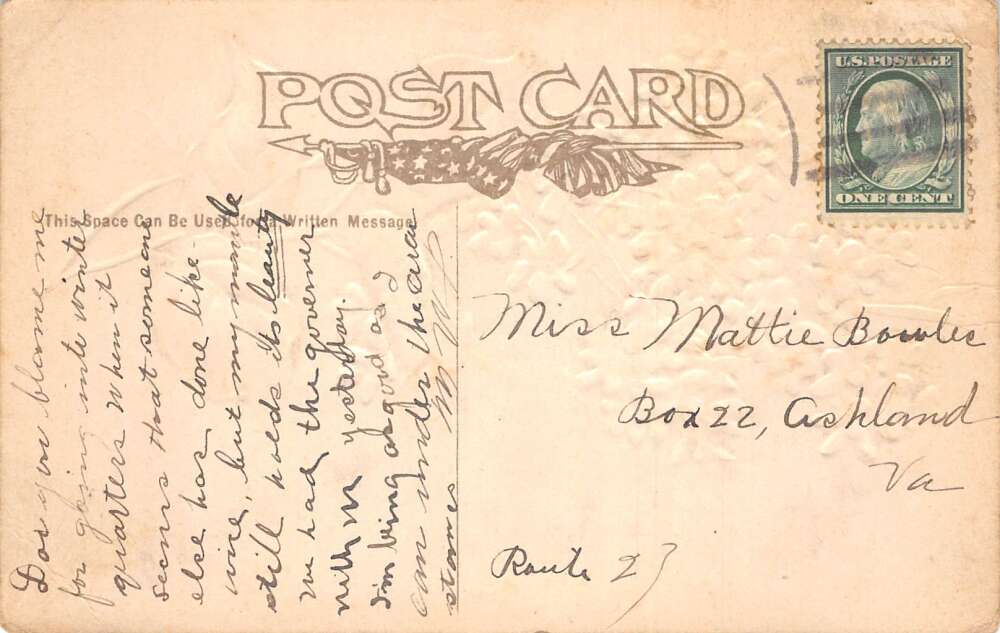 POST CARD
This Space Can Be Used for a Written Message
U.S. POSTAGE
ONE CENT
Dos you blame me
for going into winter
quarters when it
seems that someone
else has done like-
wise, but my mantle
still holds its beauty
We had the governer
with us yesterday.
I'm being as good as I
can under the circum
stances
Miss Mattie Bowles
Box 22, Ashland
Va
Route 2